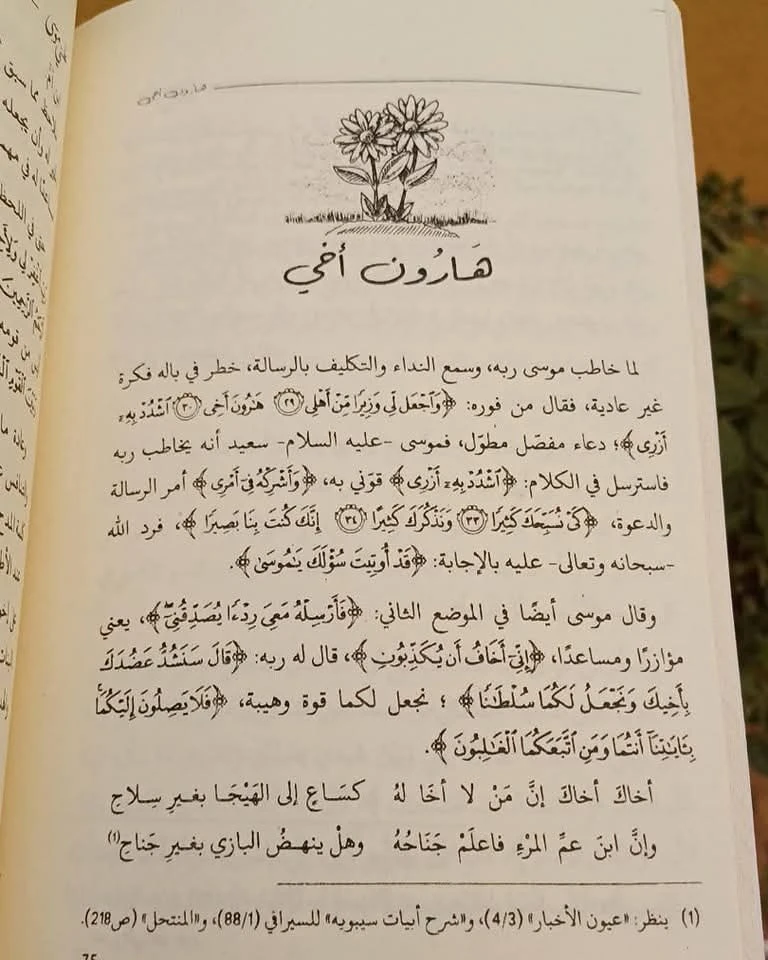 هارون أخي
هَارُون أخي
لما خاطب موسى ربه، وسمع النداء والتكليف بالرسالة، خطر في باله فكرة
غير عادية، فقال من فوره: ﴿وَٱجْعَل لِّي وَزِيرًا مِّنْ أَهْلِي ۝٢٩ هَٰرُونَ أَخِي ۝٣٠ ٱشْدُدْ بِهِۦٓ
أَزْرِي﴾؛ دعاء مفصّل مطوّل، فموسى -عليه السلام- سعيد أنه يخاطب ربه
فاسترسل في الكلام: ﴿ٱشْدُدْ بِهِۦٓ أَزْرِي﴾ قوّني به، ﴿وَأَشْرِكْهُ فِيٓ أَمْرِي﴾ أمر الرسالة
والدعوة، ﴿كَيْ نُسَبِّحَكَ كَثِيرًا ۝٣٣ وَنَذْكُرَكَ كَثِيرًا ۝٣٤ إِنَّكَ كُنتَ بِنَا بَصِيرًا﴾، فرد الله
-سبحانه وتعالى- عليه بالإجابة: ﴿قَدْ أُوتِيتَ سُؤْلَكَ يَٰمُوسَىٰ﴾.
وقال موسى أيضًا في الموضع الثاني: ﴿فَأَرْسِلْهُ مَعِيَ رِدْءًا يُصَدِّقُنِيٓ﴾، يعني
مؤازرًا ومساعدًا، ﴿إِنِّيٓ أَخَافُ أَن يُكَذِّبُونِ﴾، قال له ربه: ﴿قَالَ سَنَشُدُّ عَضُدَكَ
بِأَخِيكَ وَنَجْعَلُ لَكُمَا سُلْطَٰنًا﴾؛ نجعل لكما قوة وهيبة، ﴿فَلَا يَصِلُونَ إِلَيْكُمَا
بِـَٔايَٰتِنَآ أَنتُمَا وَمَنِ ٱتَّبَعَكُمَا ٱلْغَٰلِبُونَ﴾.
أخاكَ أخاكَ إنَّ مَنْ لا أخَا لهُ كسَـاعٍ إلى الهَيْجَـا بغيرِ سِـلاحِ
وإنَّ ابنَ عمِّ المرْءِ فاعلَمْ جَنَاحُهُ وهلْ ينهـضُ البازي بغيرِ جَناحِ(1)
(1) ينظر: «عيون الأخبار» (4/3)، و«شرح أبيات سيبويه» للسيرافي (88/1)، و«المنتحل» (ص218).